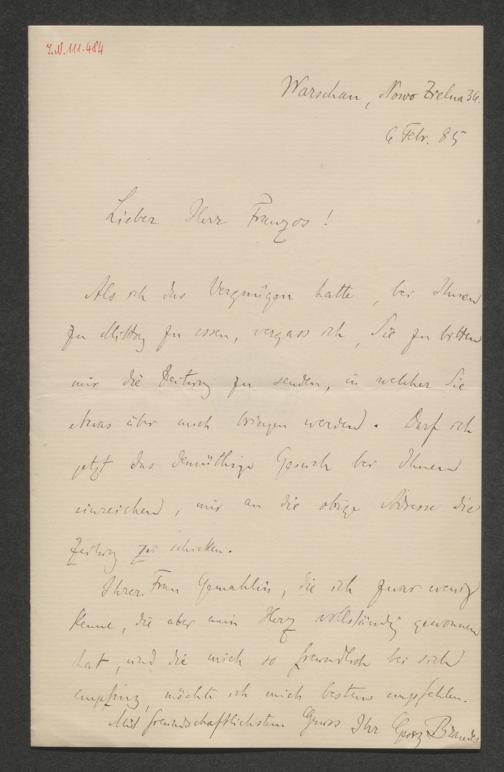 I.N. 111.484
Warschau, Nowo Zielna 34.
6 Febr. 85
Lieber Herr Franzos!
Als ich das Vergnügen hatte, bei Ihnen
zu Mittag zu essen, vergass ich, Sie zu bitten
mir die Zeitung zu senden, in welcher Sie
etwas über mich bringen werden. Darf ich
jetzt das demüthige Gesuch bei Ihnen
einreichen, mir an die obige Adresse die
Zeitung zu schicken.
Ihrer Frau Gemahlin, die ich zwar wenig
kenne, die aber mein Herz vollständig gewonnen
hat, und die mich so freundlich bei sich
empfing, möchte ich mich bestens empfehlen.
Mit freundschaftlichstem Gruss Ihr Georg Brandes